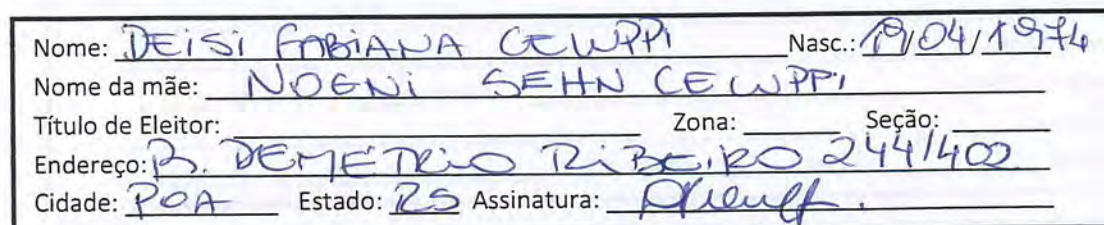 Nome: DEISI FABIANA CEWPPI Nasc.: 19/04/1974
Nome da mãe: NOENI SEHN CEWPPI
Título de Eleitor: Zona: Seção:
Endereço: R. DEMETRIO RIBEIRO 244/402
Cidade: POA Estado: RS Assinatura: